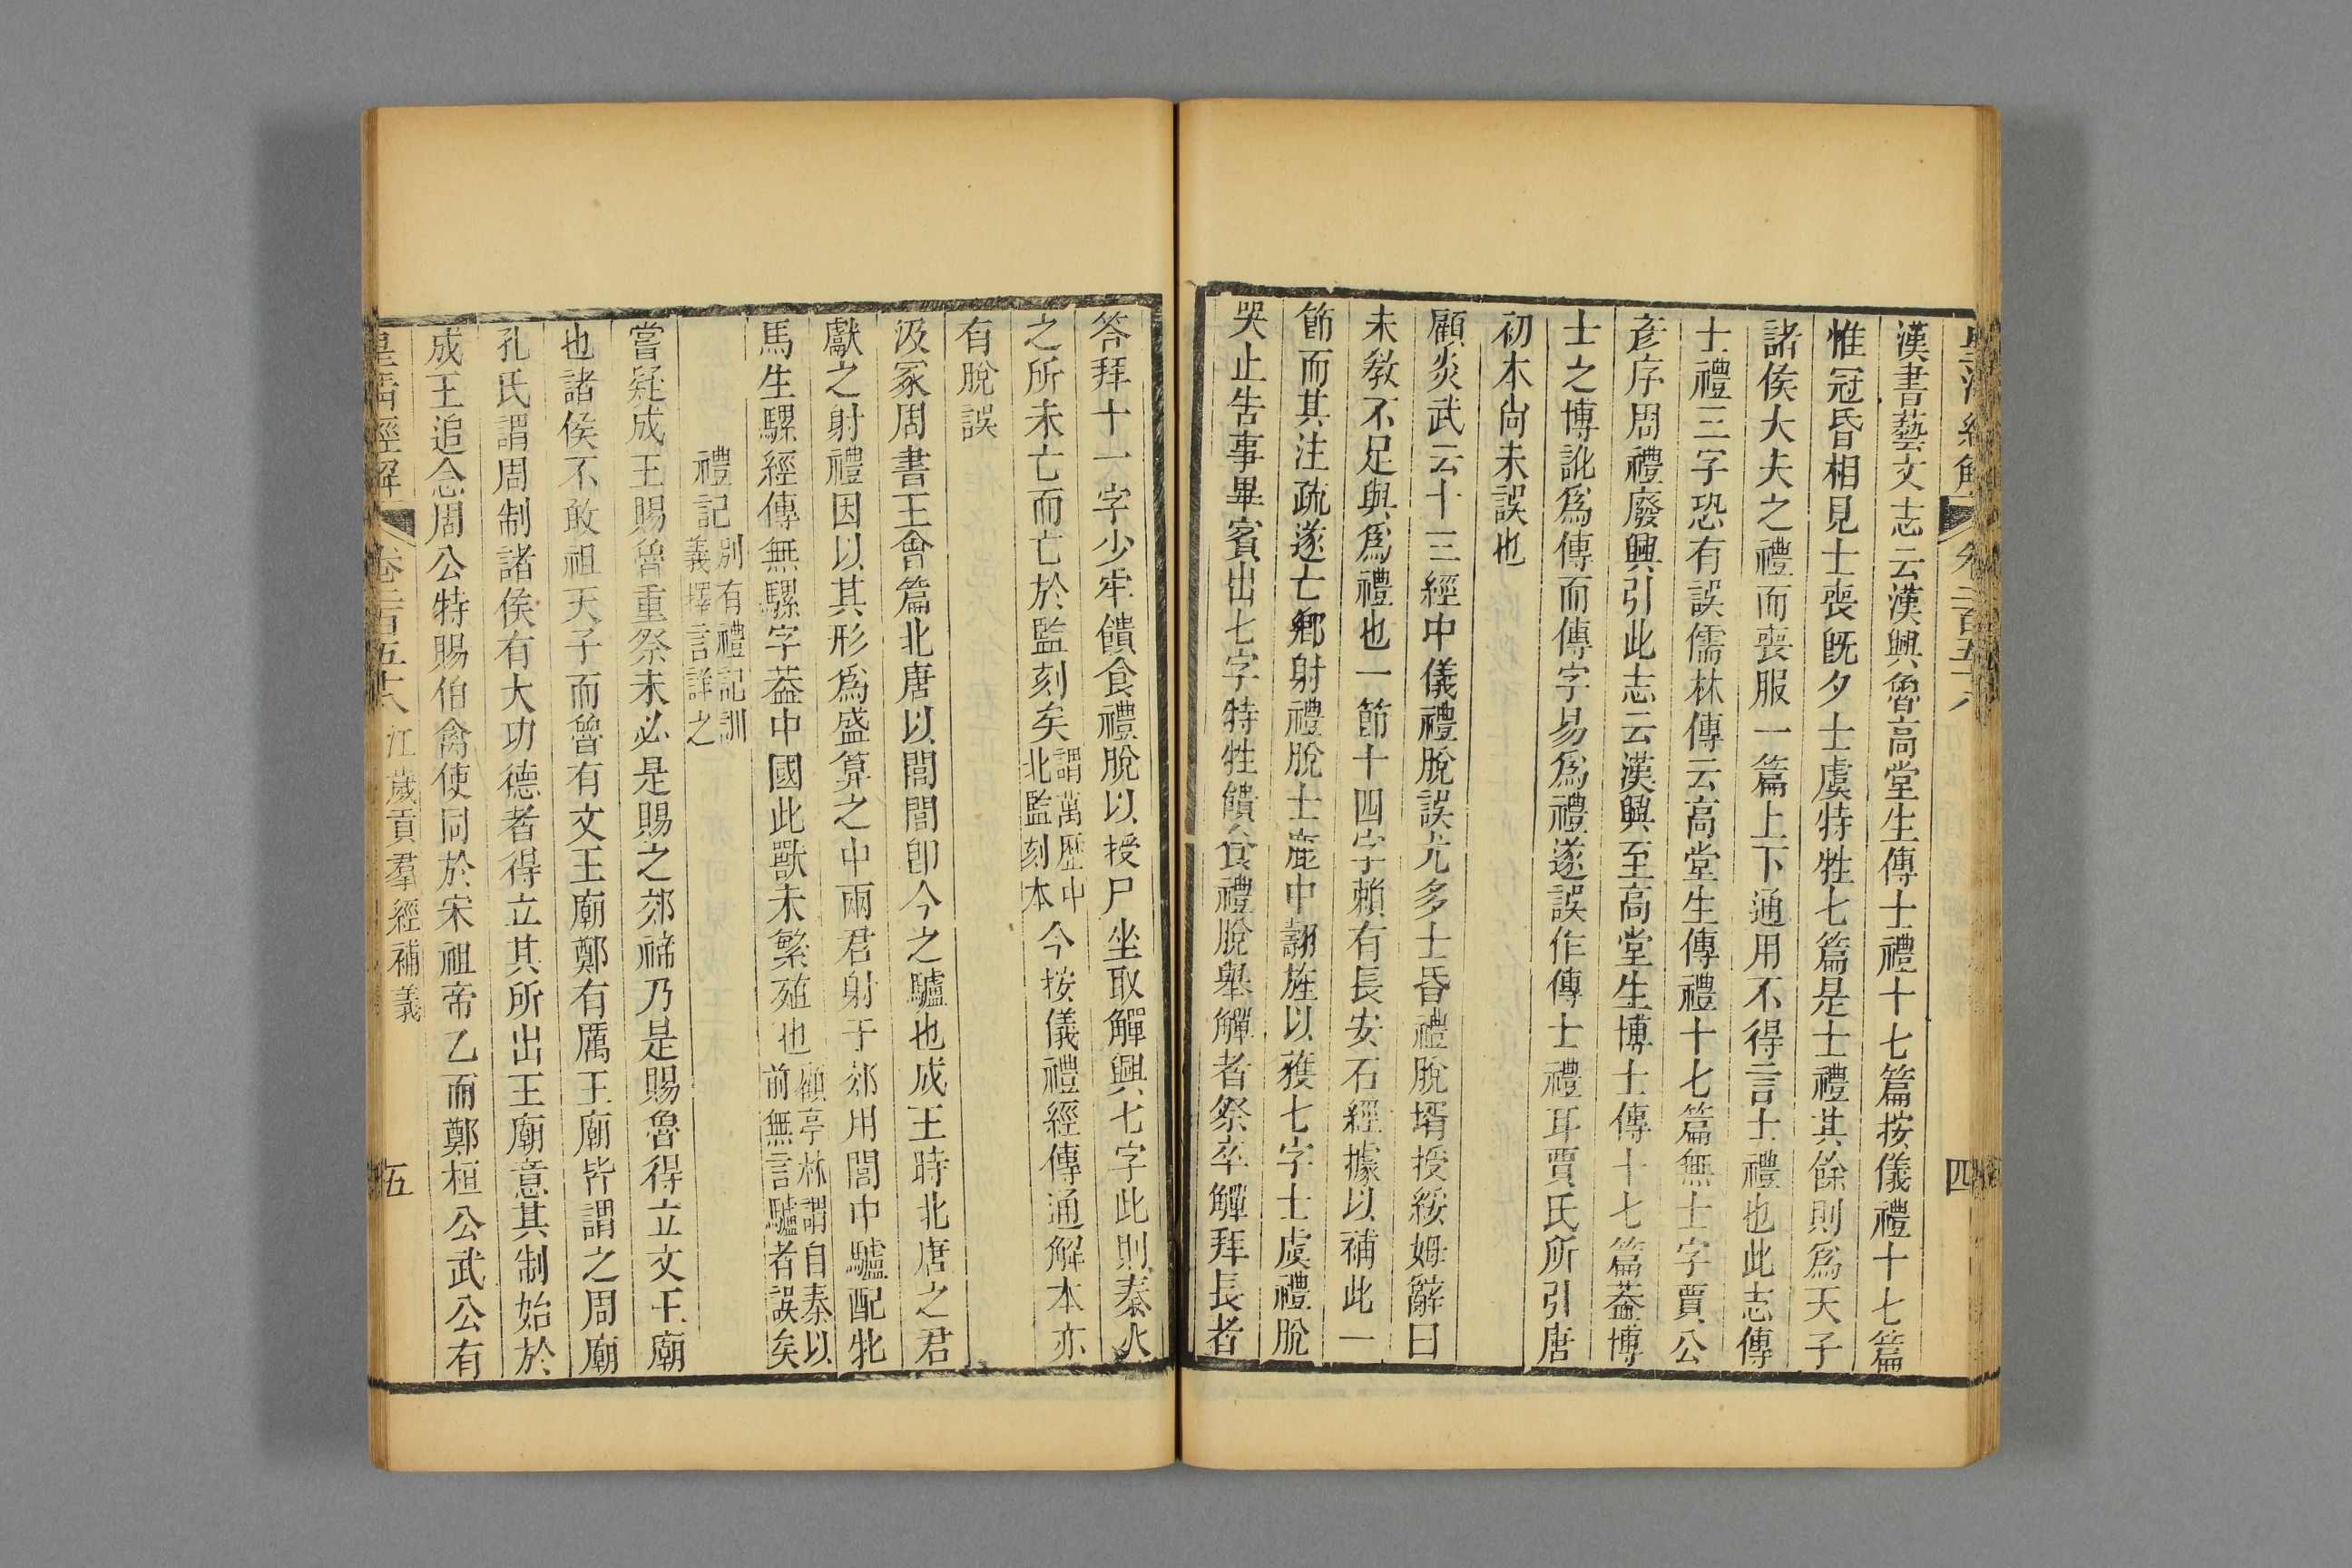 皇清經解 卷二百五十八 四
漢書藝文志云漢興魯高堂生傳士禮十七篇按儀禮十七篇
惟冠昏相見士喪既夕士虞特牲七篇是士禮其餘則爲天子
諸侯大夫之禮而喪服一篇上下通用不得言士禮也此志傳
士禮三字恐有誤儒林傳云高堂生傳禮十七篇無士字賈公
彥序周禮廢興引此志云漢興至高堂生博士傳十七篇葢博
士之博訛爲傳而傳字易爲禮遂誤作傳士禮耳賈氏所引唐
初本尙未誤也
顧炎武云十三經中儀禮脫誤尤多士昏禮脫壻授綏姆辭曰
未敎不足與爲禮也一節十四字賴有長安石經據以補此一
節而其注疏遂亡鄕射禮脫士鹿中翿旌以獲七字士虞禮脫
哭止告事畢賓出七字特牲饋食禮脫舉觶者祭卒觶拜長者
答拜十一字少牢饋食禮脫以授尸坐取觶興七字此則秦火
之所未亡而亡於監刻矣謂萬歷中北監刻本今按儀禮經傳通解本亦
有脫誤
汲冢周書王會篇北唐以閭閭卽今之驢也成王時北唐之君
獻之射禮因以其形爲盛算之中兩君射于郊用閭中驢配牝
馬生騾經傳無騾字葢中國此獸未繁殖也顧亭林謂自秦以前無言驢者誤矣
禮記別有禮記訓義擇言詳之
嘗疑成王賜魯重祭未必是賜之郊禘乃是賜魯得立文王廟
也諸侯不敢祖天子而魯有文王廟鄭有厲王廟皆謂之周廟
孔氏謂周制諸侯有大功德者得立其所出王廟意其制始於
成王追念周公特賜伯禽使同於宋祖帝乙而鄭桓公武公有
皇清經解 卷二百五十八 江歲貢羣經補義 五